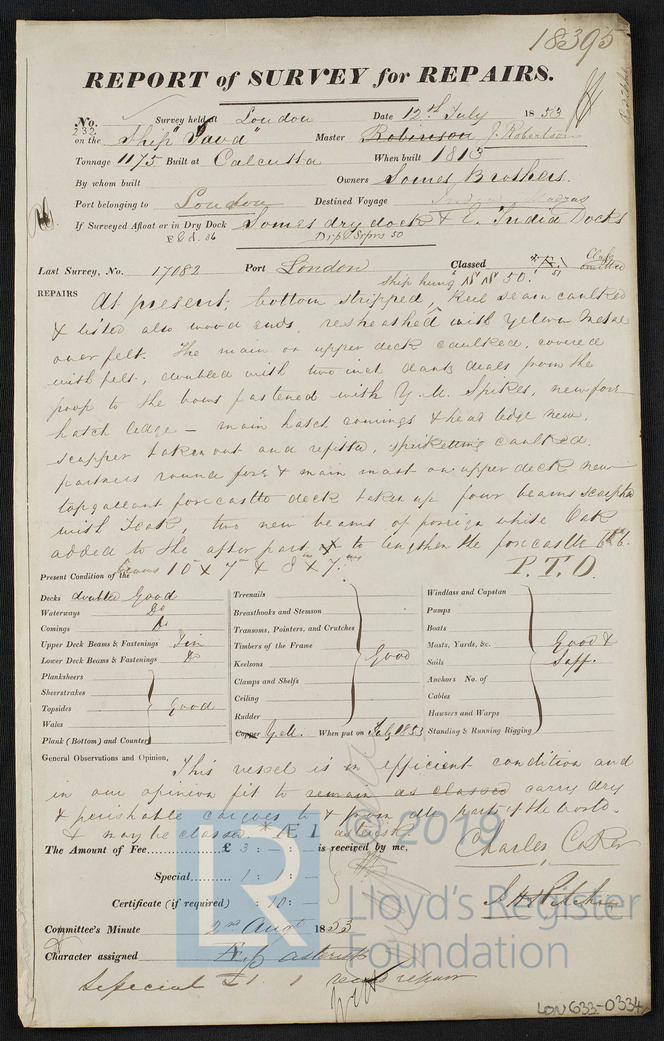 18395
REPORT of SURVEY for REPAIRS.
No. 232 Survey held at London Date 12th July 1853
on the Ship "Java" Master Robinson J. Robertson
Tonnage 1175 Built at Calcutta When built 1813
By whom built Owners Somes Brothers.
Port belonging to London Destined Voyage
If Surveyed Afloat or in Dry Dock Somes dry dock & E. India Docks
Last Survey, No. 17082 Port London Classed
ship hung 50.
REPAIRS At present, bottom stripped, Keel seam caulked
& listed also wood ends, resheathed with Yellow Metal
over felt. The main or upper deck caulked, covered
with felt, doubled with two inch dantz deals from the
poop to the bows fastened with Y.M. Spikes, new fore
hatch ledge – main hatch comings & head ledge new,
scupper taken out and refitted, spirketting caulked.
partners round fore & main mast on upper deck new
topgallant forecastle deck taken up four beams scarphed
with Teak, two new beams of foreign white Oak
added to the after part to lengthen the forecastle
beams 10 x 7 & 8 x 7.
P.T.O.
Present Condition of the
Decks doubled Good
Waterways Do
Comings Do
Upper Deck Beams & Fastenings Fir
Lower Deck Beams & Fastenings Do
Planksheers
Sheerstrakes
Topsides Good
Wales
Plank (Bottom) and Counter
Treenails
Breasthooks and Stemson
Transoms, Pointers, and Crutches
Timbers of the Frame
Keelsons Good
Clamps and Shelfs
Ceiling
Rudder
Copper Yell. When put on July 1853
Windlass and Capstan
Pumps
Boats
Masts, Yards, &c. Good &
Sails Suff.
Anchors No. of
Cables
Hawsers and Warps
Standing & Running Rigging
General Observations and Opinion, This vessel is in efficient condition and
in our opinion fit to remain as classed carry dry
& perishable cargoes to & from all parts of the world.
& may be classed * Æ 1 asterisk
The Amount of Fee............£ 3 : – : – is received by me,
Charles Coker
Special.......... 1 : 1 : –
Certificate (if required) : 10 : –
J H Ritchie
Committee's Minute 2nd Augt 1853
Character assigned Æ 1 asterisk
Special £1 1 recd
© 2019
Lloyd's Register
Foundation
LR
LON 633-0334